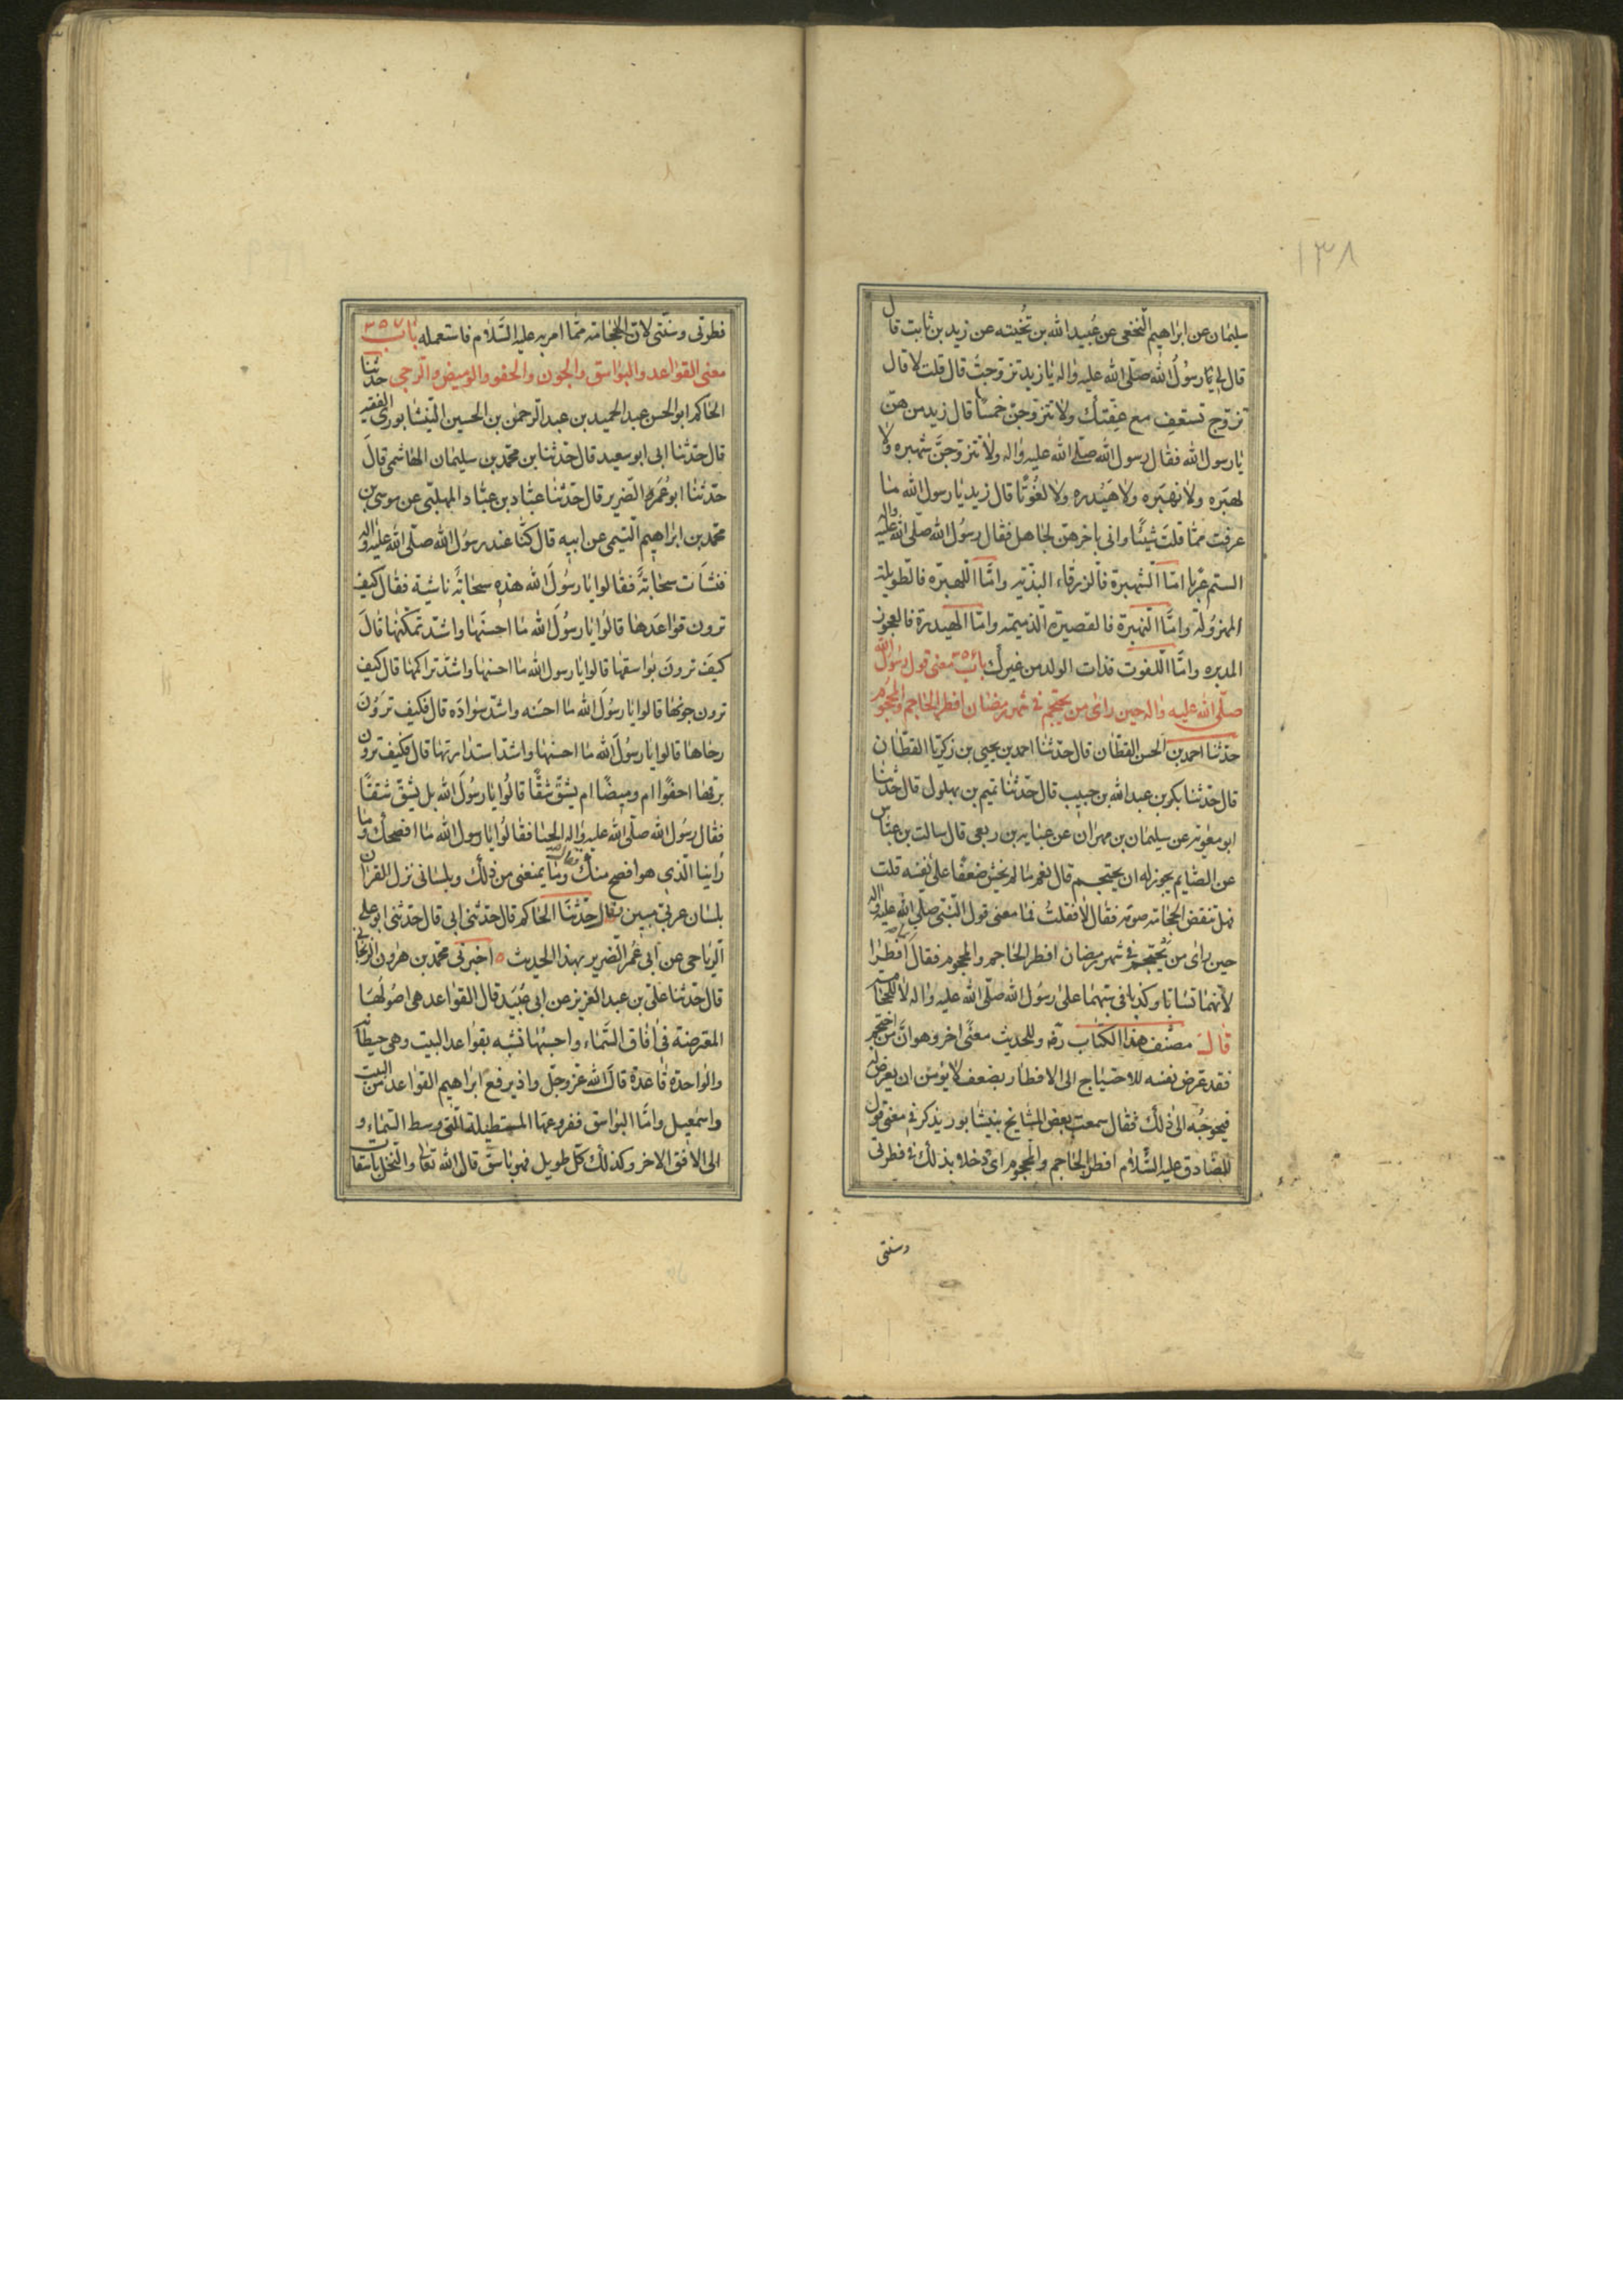 ١٣٨
سليمان عن ابراهيم النخعي عن عبيد الله بن نخيته عن زيد بن ثابت قال
قال لي يا رسول الله صلى الله عليه واله يا زيد تزوجت قال قلت لا قال
تزوج تستعف مع عفتك ولا تتزوجن خمسا قال زيد من هن
يا رسول الله فقال رسول الله صلى الله عليه واله ولا تتزوجن شهبره ولا
لهبره ولا نهبره ولا هيدره ولا لفوتا قال زيد يا رسول الله ما
عرفت مما قلت شيئا واني باخرهن لجاهل فقال رسول الله صلى الله عليه واله
الستم عربا اما الشهبرة فالزرقاء البذية واما اللهبره فالطويلة
المهزولة واما النهبرة فالقصيرة الذميمة واما الهيدرة فالعجوز
المدبره واما اللفوت فذات الولد من غيرك باب معنى قول رسول الله
صلى الله عليه واله حين راى من يحتجم في شهر رمضان افطر الحاجم والمحجوم
حدثنا احمد بن الحسن القطان قال حدثنا احمد بن يحيى بن زكريا القطان
قال حدثنا بكر بن عبد الله بن حبيب قال حدثنا تميم بن بهلول قال حدثنا
ابو معوية عن سليمان بن مهران عن عباية بن ربعي قال سالت بن عباس
عن الصايم يجوز له ان يحتجم قال نعم ما لم يخش ضعفا على نفسه قلت
فهل تنقض الحجامة صومه فقال لا فقلت فما معنى قول النبي صلى الله عليه واله
حين راى من يحتجم في شهر رمضان افطر الحاجم والمحجوم فقال افطرا
لانهما تسابا وكذبا في سبهما على رسول الله صلى الله عليه واله لا للحجامة
قال مصنف هذا الكتاب رة وللحديث معنى اخر وهو ان من احتجم
فقد عرض نفسه للاحتياج الى الافطار بضعف لا يؤمن ان يعرض له
فيحوجه الى ذلك فقال سمعت بعض المشايخ بنيشابور يذكر في معنى قول
للصادق عليه السلام افطر الحاجم والمحجوم اى دخلا بذلك في فطرتي
وسنتي
فطرتي وسنتي لان الحجامة مما امر به عليه السلام فاستعمله باب
معنى القواعد والبواسق والجون والحفو والوميض والرحى حدثنا
الحاكم ابو الحسن عبد الحميد بن عبد الرحمن بن الحسين النيشابوري الفقيه
قال حدثنا ابي ابو سعيد قال حدثنا بن محمد بن سليمان الهاشمي قال
حدثنا ابو عمره الضرير قال حدثنا عباد بن عباد المهلبي عن موسى بن
محمد بن ابراهيم التيمي عن ابيه قال كنا عند رسول الله صلى الله عليه واله
فنشات سحابة فقالوا يا رسول الله هذه سحابة ناشئة فقال كيف
ترون قواعدها قالوا يا رسول الله ما احسنها واشد تمكنها قال
كيف ترون بواسقها قالوا يا رسول الله ما احسنها واشد تراكمها قال كيف
ترون جونها قالوا يا رسول الله ما احسنه واشد سواده قال فكيف ترون
رحاها قالوا يا رسول الله ما احسنها واشد استدارتها قال فكيف ترون
برقها احفوا ام وميضا ام يشق شقا قالوا يا رسول الله بل يشق شقا
فقال رسول الله صلى الله عليه واله الحيا فقالوا يا رسول الله ما افصحك وما
راينا الذي هو افصح منك وما يمنعني من ذلك وبلساني نزل القران
بلسان عربي مبين قال حدثنا الحاكم قال حدثني ابي قال حدثني ابو علي
الرياحي عن ابي عمر الضرير بهذا الحديث اخبرني محمد بن هرون الزنجاني
قال حدثنا علي بن عبد العزيز عن ابي عبيد قال القواعد هي اصولها
المعترضة في افاق السماء واحسبها تشبه بقواعد البيت وهي حيطانه
والواحدة قاعدة قال الله عز وجل واذ يرفع ابراهيم القواعد من البيت
واسمعيل واما البواسق ففروعها المستطيلة التي وسط السماء و
الى الافق الاخر وكذلك كل طويل فهو باسق قال الله تعالى والنخل باسقات